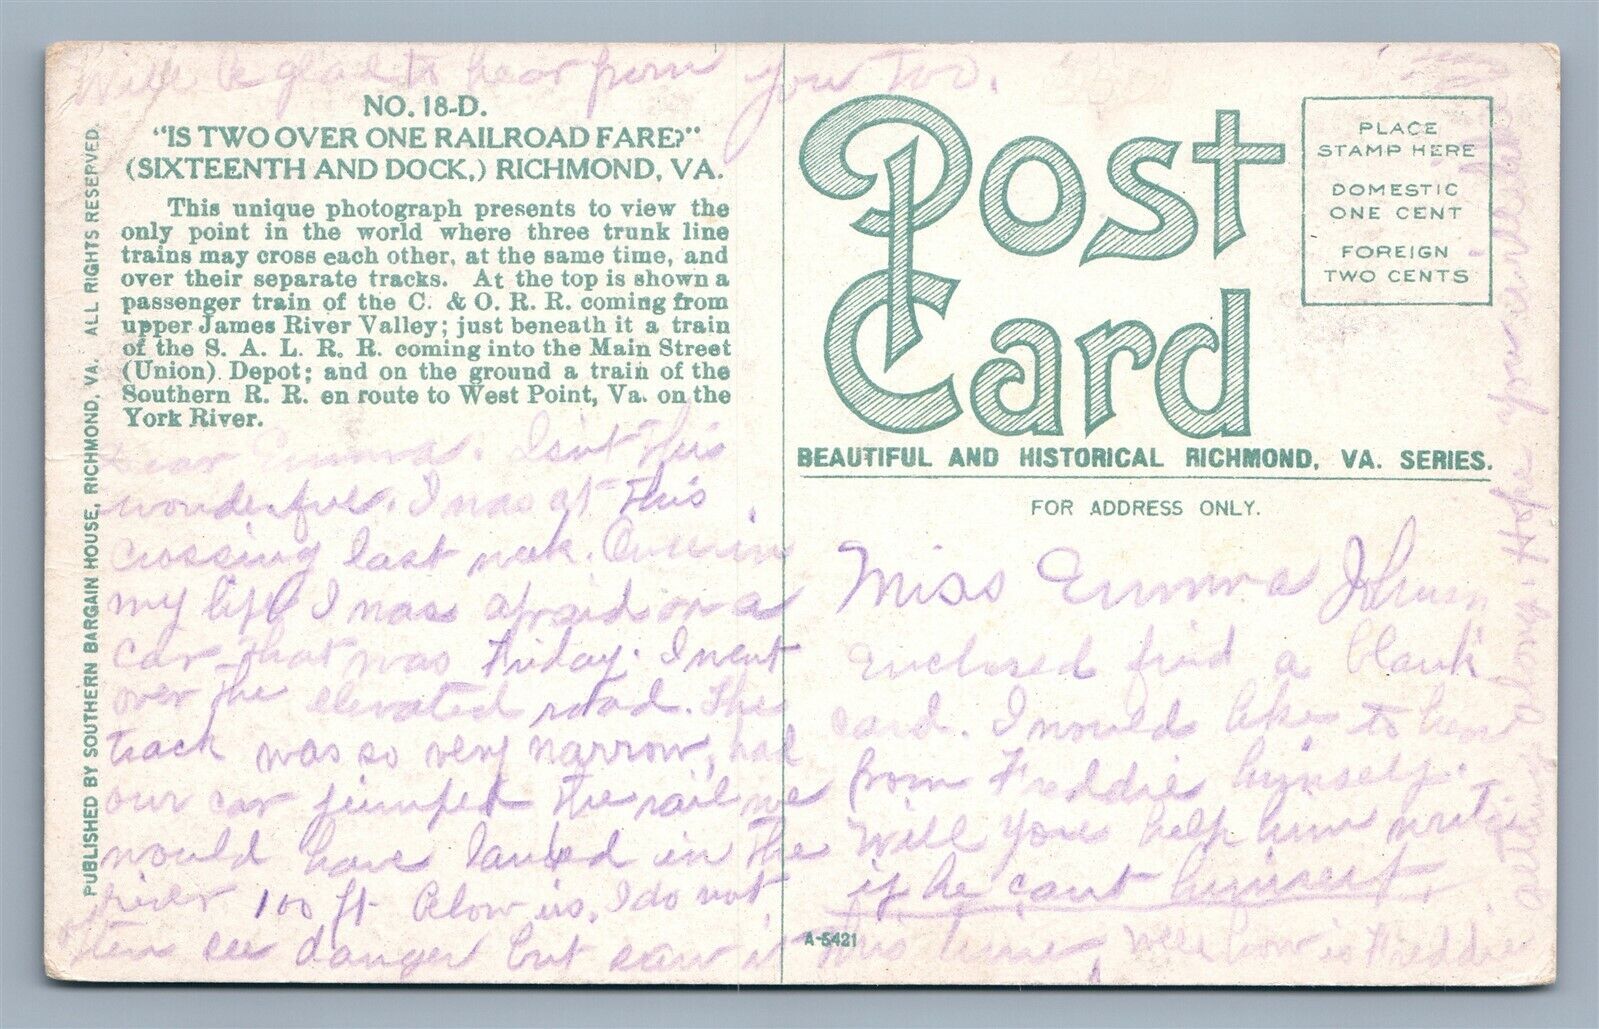 Will be glad to hear from you too.
NO. 18-D.
"IS TWO OVER ONE RAILROAD FARE?"
(SIXTEENTH AND DOCK,) RICHMOND, VA.
This unique photograph presents to view the
only point in the world where three trunk line
trains may cross each other, at the same time, and
over their separate tracks. At the top is shown a
passenger train of the C. & O. R. R. coming from
upper James River Valley; just beneath it a train
of the S. A. L. R. R. coming into the Main Street
(Union) Depot; and on the ground a train of the
Southern R. R. en route to West Point, Va. on the
York River.
PUBLISHED BY SOUTHERN BARGAIN HOUSE, RICHMOND, VA. ALL RIGHTS RESERVED.
Dear Emma. Isnt this
wonderful. I was at this
crossing last week. Once in
my life I was afraid on a
car that was Friday. I went
over the elevated road. The
track was so very narrow, had
our car jumped the rail we
would have landed in the
river 100 ft below us. I do not
often see danger but saw it
this time, Well how is Freddie
Post
Card
PLACE
STAMP HERE
DOMESTIC
ONE CENT
FOREIGN
TWO CENTS
BEAUTIFUL AND HISTORICAL RICHMOND, VA. SERIES.
FOR ADDRESS ONLY.
Miss Emma Johnson
Enclosed find a blank
card. I would like to hear
from Freddie hymself.
Will you help him write
if he cant himself.
A-5421
getting along. Hope you